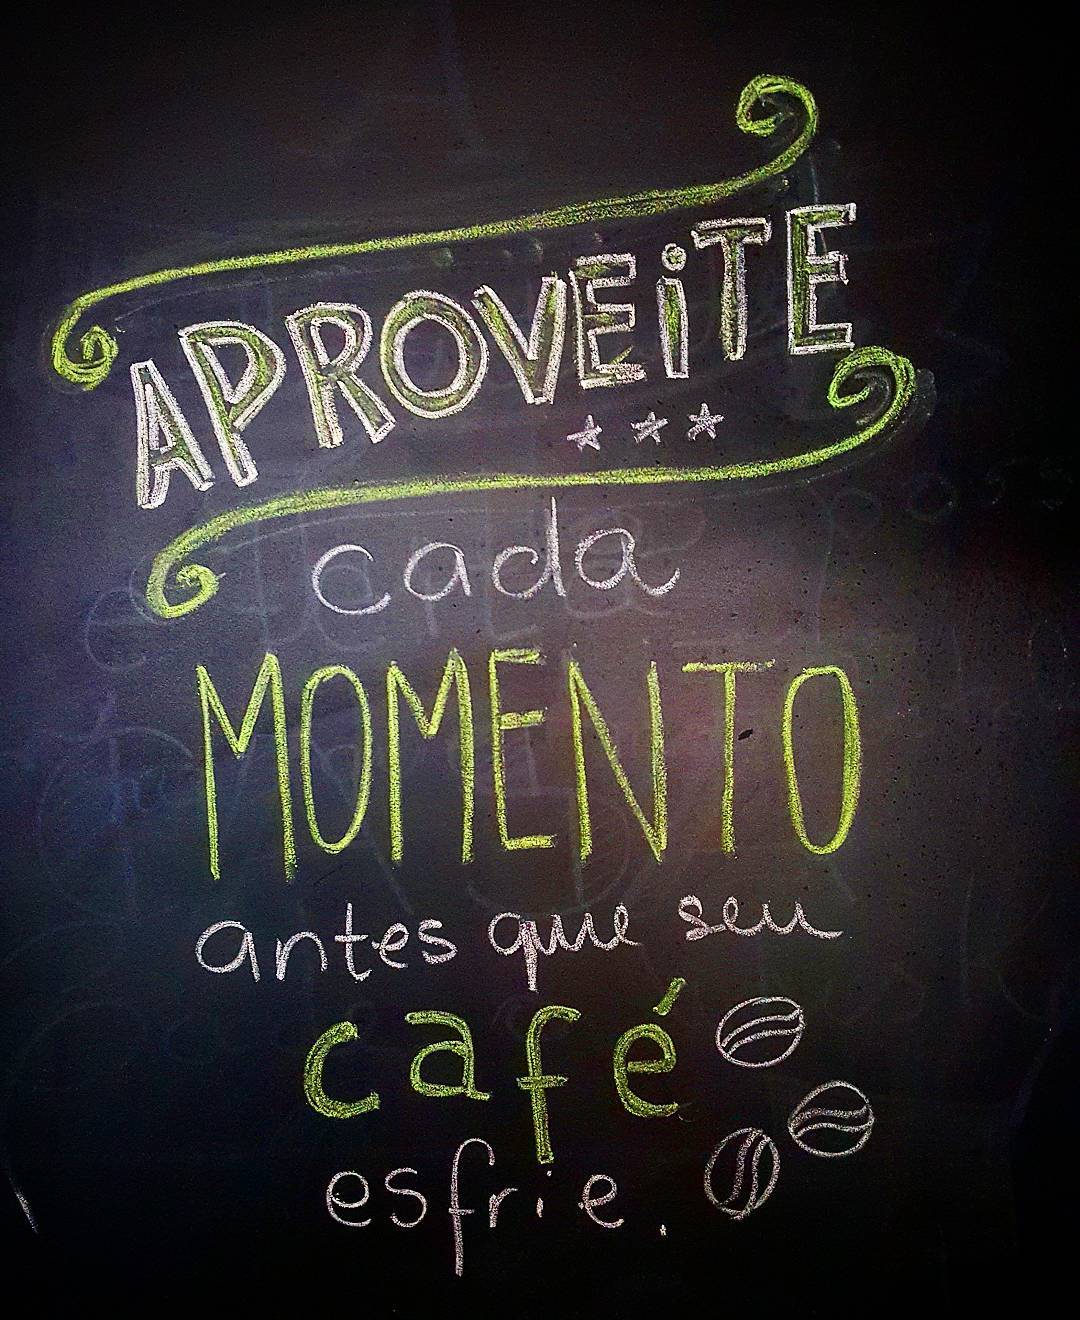 APROVEiTE
cada
MOMENTO
antes que seu
café
esfrie.